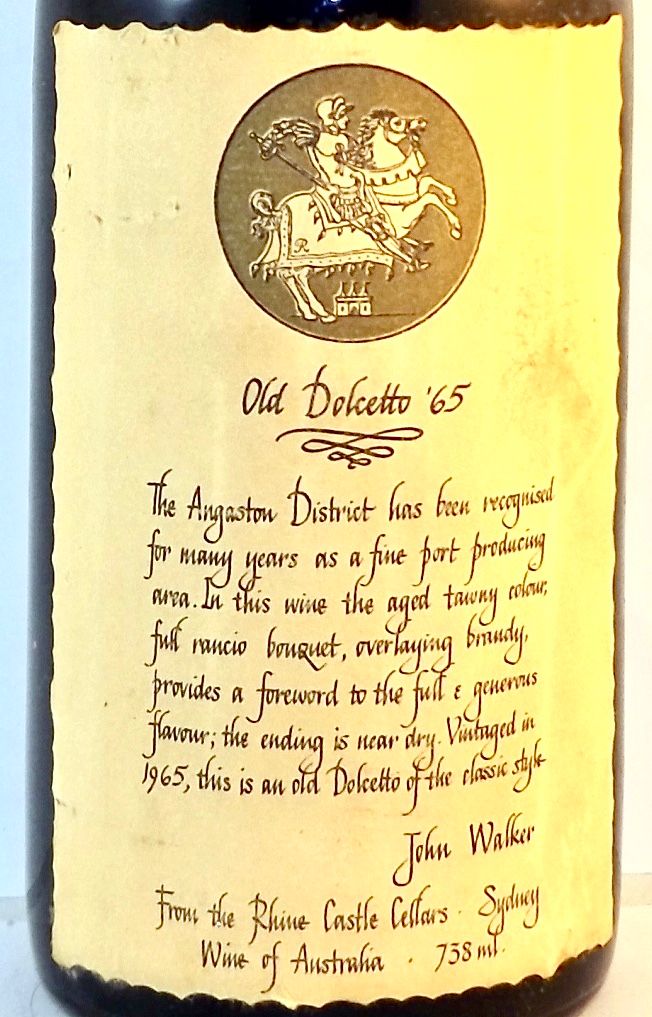 R
Old Dolcetto '65
The Angaston District has been recognised
for many years as a fine port producing
area. In this wine the aged tawny colour,
full rancio bouquet, overlaying brandy,
provides a foreword to the full & generous
flavour; the ending is near dry. Vintaged in
1965, this is an old Dolcetto of the classic style
John Walker
From the Rhine Castle Cellars · Sydney
Wine of Australia · 738 ml.